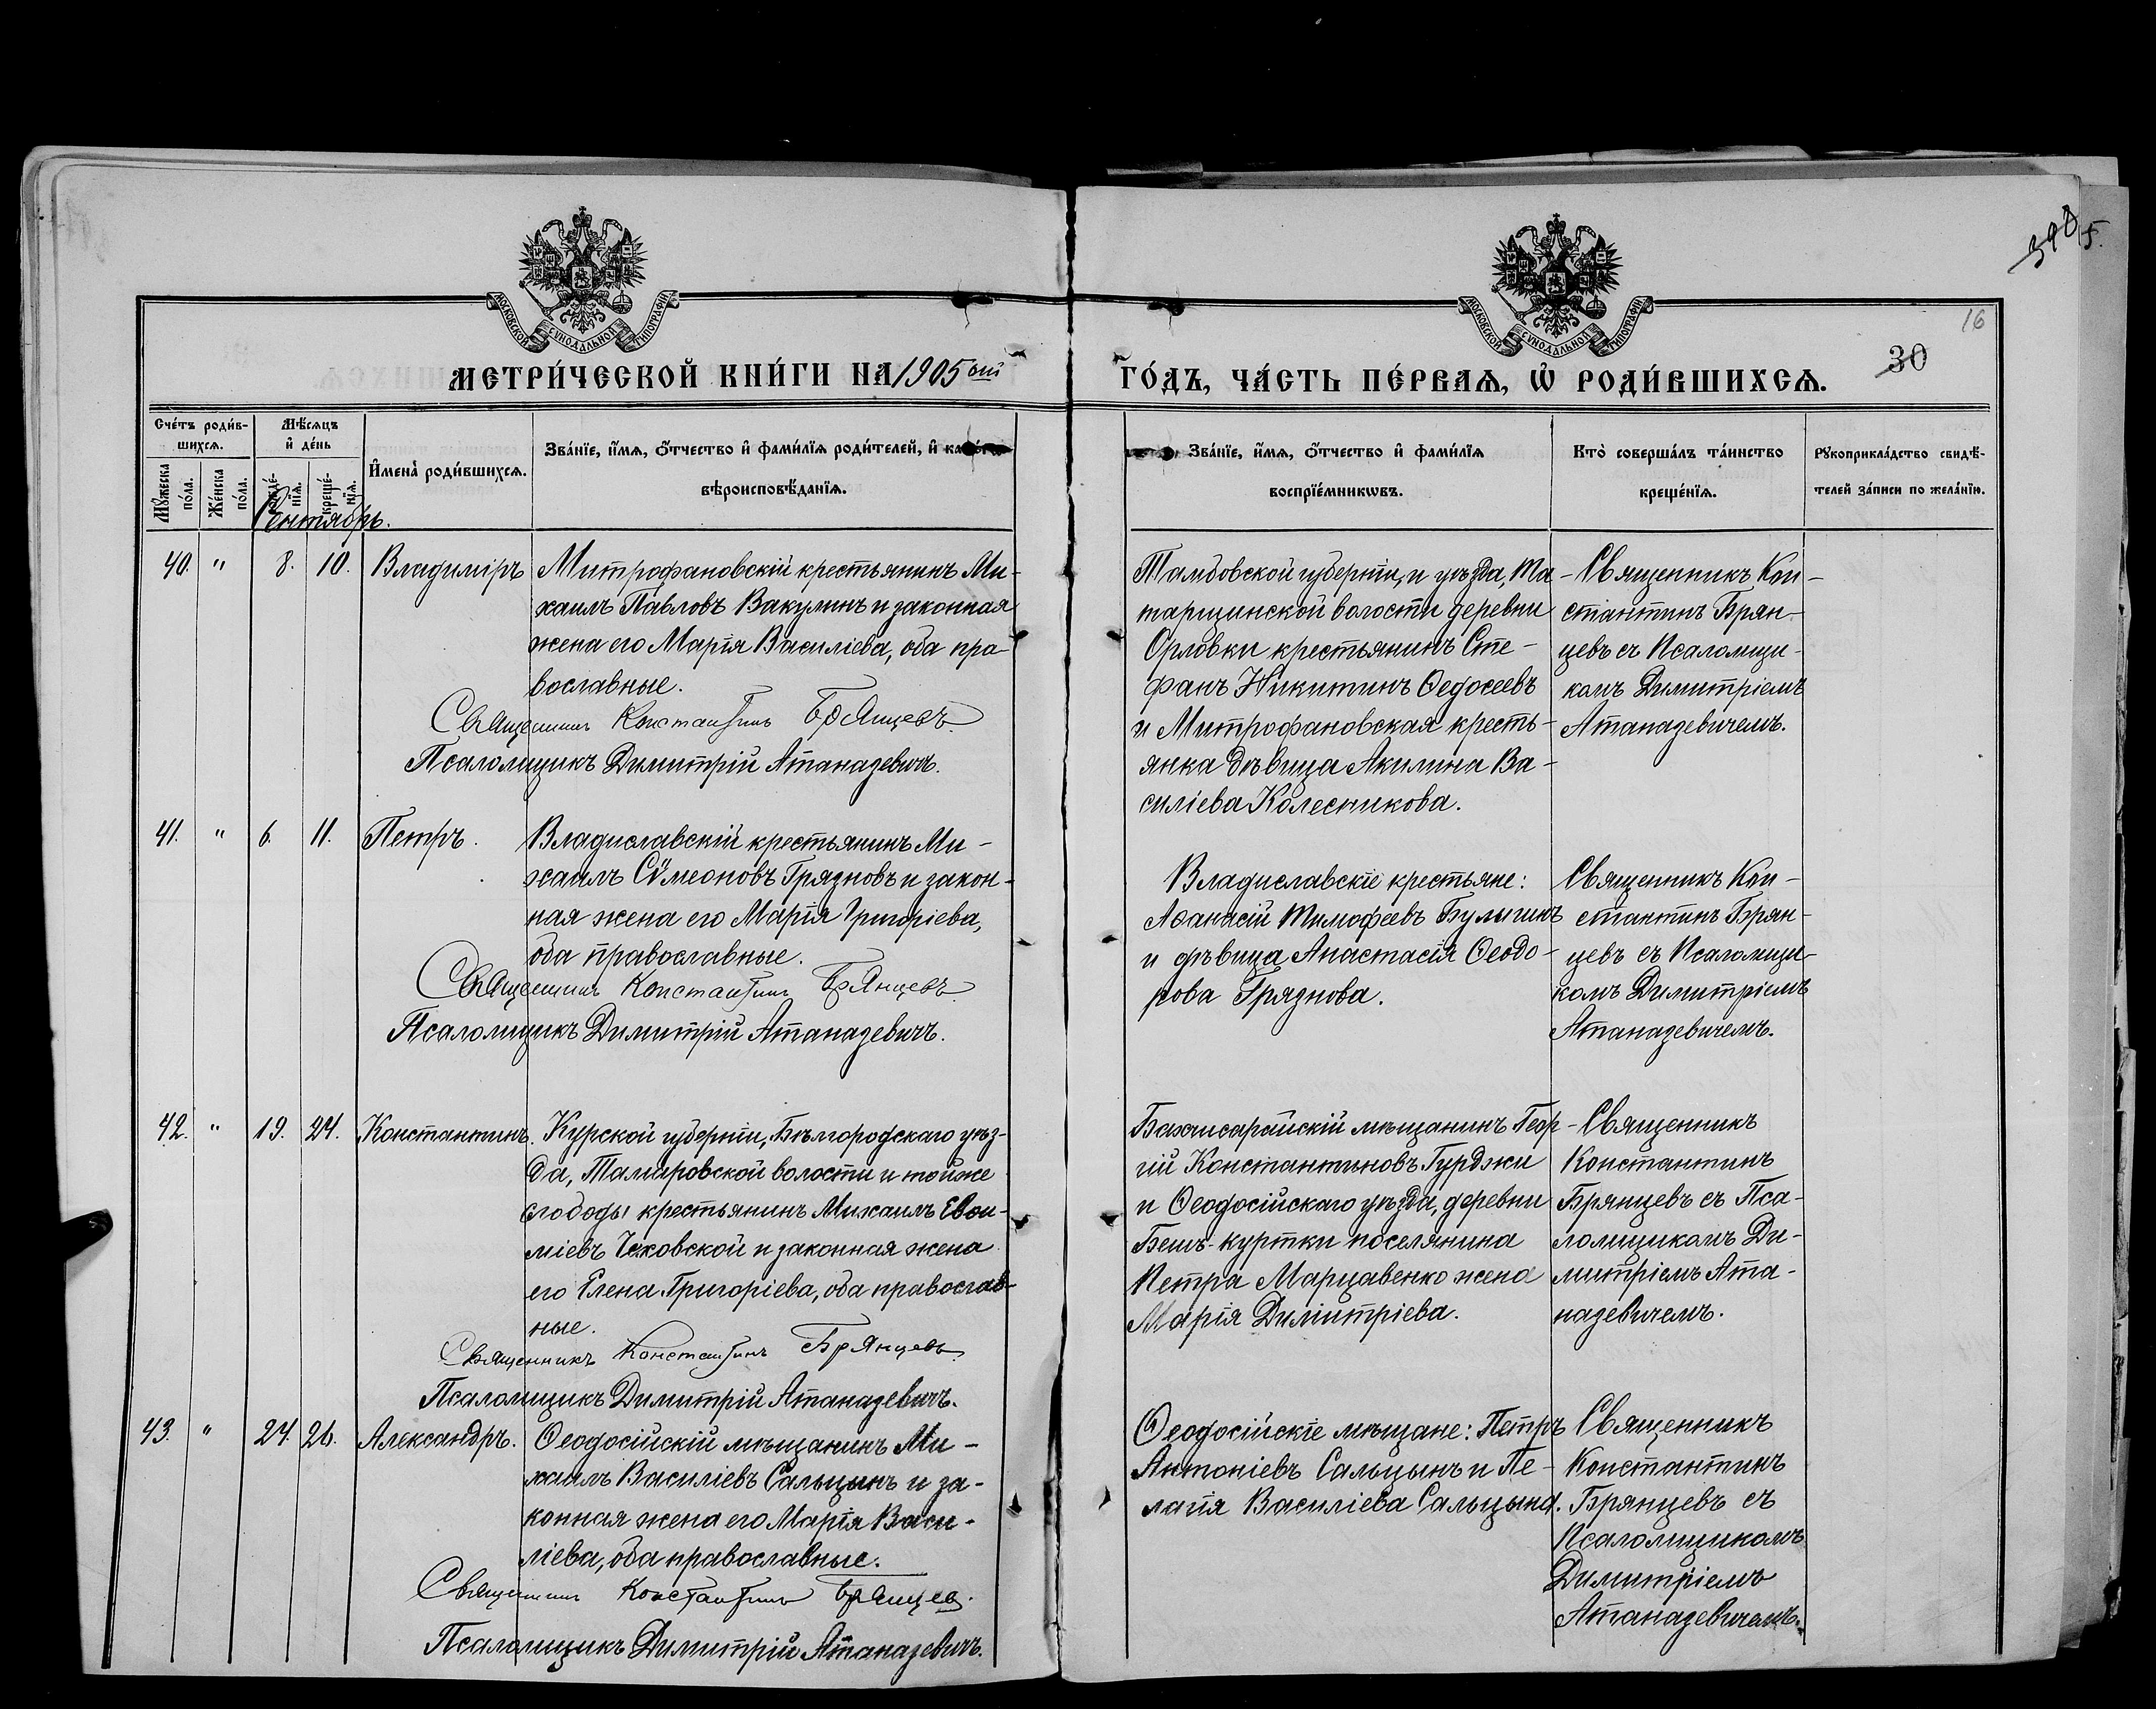 398
5.
16
30
МОСКОВСКОЙ СУНОДАЛЬНОЙ ТИПОГРАФІИ
МОСКОВСКОЙ СУНОДАЛЬНОЙ ТИПОГРАФІИ
МЕТРИ́ЧЕСКОЙ КНИ́ГИ НА 1905 ый
ГО́ДЪ, ЧА́СТЬ ПЕ́РВАѦ, Ѡ҆ РОДИ́ВШИХСѦ.
Сче́тъ роди́в-
шихсѧ.
Мѣ́сѧцъ
и҆ де́нь
Мꙋ́жеска
по́ла.
Же́нска
по́ла.
креще́-
нїѧ.
И҆мена̀ роди́вшихсѧ.
Зва́нїе, и҆́мѧ, ѻ҆́тчество и҆ фами́лїѧ роди́телей, и҆
вѣроисповѣ́данїѧ.
Зва́нїе, и҆́мѧ, ѻ҆́тчество и҆ фами́лїѧ
воспрїе́мникѡвъ.
Кто̀ соверша́лъ та́инство
креще́нїѧ.
Рꙋкоприкла́дство свидѣ́-
телей за́писи по жела́нїю.
Сентябрь.
40. " 8. 10. Владиміръ
Митрофановскій крестьянинъ Ми-
хаилъ Павловъ Вакулинъ и законная
жена его Марія Василіева, оба пра-
вославные.
Священникъ Константинъ Брянцевъ.
Псаломщикъ Димитрій Атаназевичъ.
Тамбовской губерніи, и уѣзда, Та-
тарщинской волости деревни
Орловки крестьянинъ Сте-
фанъ Никитинъ Ѳедосеевъ
и Митрофановская кресть-
янка дѣвица Акилина Ва-
силіева Колесникова.
Священникъ Кон-
стантинъ Брян-
цевъ съ Псаломщи-
комъ Димитріемъ
Атаназевичемъ.
41. " 6. 11. Петръ.
Владиславскій крестьянинъ Ми-
хаилъ Сѵмеоновъ Грязновъ и закон-
ная жена его Марія Григоріева,
оба православные.
Священникъ Константинъ Брянцевъ.
Псаломщикъ Димитрій Атаназевичъ.
Владиславскіе крестьяне:
Аѳанасій Тимофеевъ Булыгинъ
и дѣвица Анастасія Ѳеодо-
рова Грязнова.
Священникъ Кон-
стантинъ Брян-
цевъ съ Псаломщи-
комъ Димитріемъ
Атаназевичемъ.
42. " 19. 24. Константинъ.
Курской губерніи, Бѣлгородскаго уѣз-
да, Томаровской волости и тойже
слободы крестьянинъ Михаилъ Евѳи-
міевъ Чеховской и законная жена
его Елена Григоріева, оба православ-
ные.
Священникъ Константинъ Брянцевъ.
Псаломщикъ Димитрій Атаназевичъ.
Бахчисарайскій мѣщанинъ Геор-
гій Константиновъ Гурджи
и Ѳеодосійскаго уѣзда, деревни
Бешъ-куртки поселянина
Петра Марцавенко жена
Марія Димитріева.
Священникъ
Константинъ
Брянцевъ съ Пса-
ломщикомъ Ди-
митріемъ Ата-
назевичемъ.
43. " 24. 26. Александръ.
Ѳеодосійскій мѣщанинъ Ми-
хаилъ Василіевъ Сальцынъ и за-
конная жена его Марія Васи-
ліева, оба православные.
Священникъ Константинъ Брянцев.
Псаломщикъ Димитрій Атаназевичъ.
Ѳеодосійскіе мѣщане: Петръ
Антоніевъ Сальцынъ и Пе-
лагія Василіева Сальцына.
Священникъ
Константинъ
Брянцевъ съ
Псаломщикомъ
Димитріемъ
Атаназевичемъ.